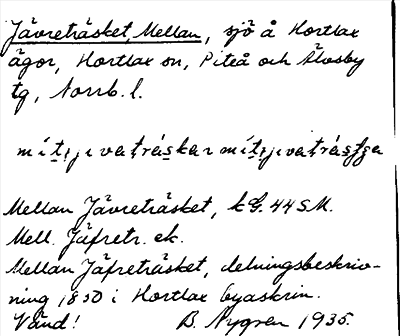 Jävreträsket, Mellan, sjö å Hortlax
ägor, Hortlax sn, Piteå och Älvsby
tg, Norrb. l.
Mellan Jävreträsket, 44 S.M.
Mell. Jäfretr. ek.
Mellan Jäfreträsket, delningsbeskriv-
ning 1850 i Hortlax byaskrin.
Vänd! B. Nygren 1935.